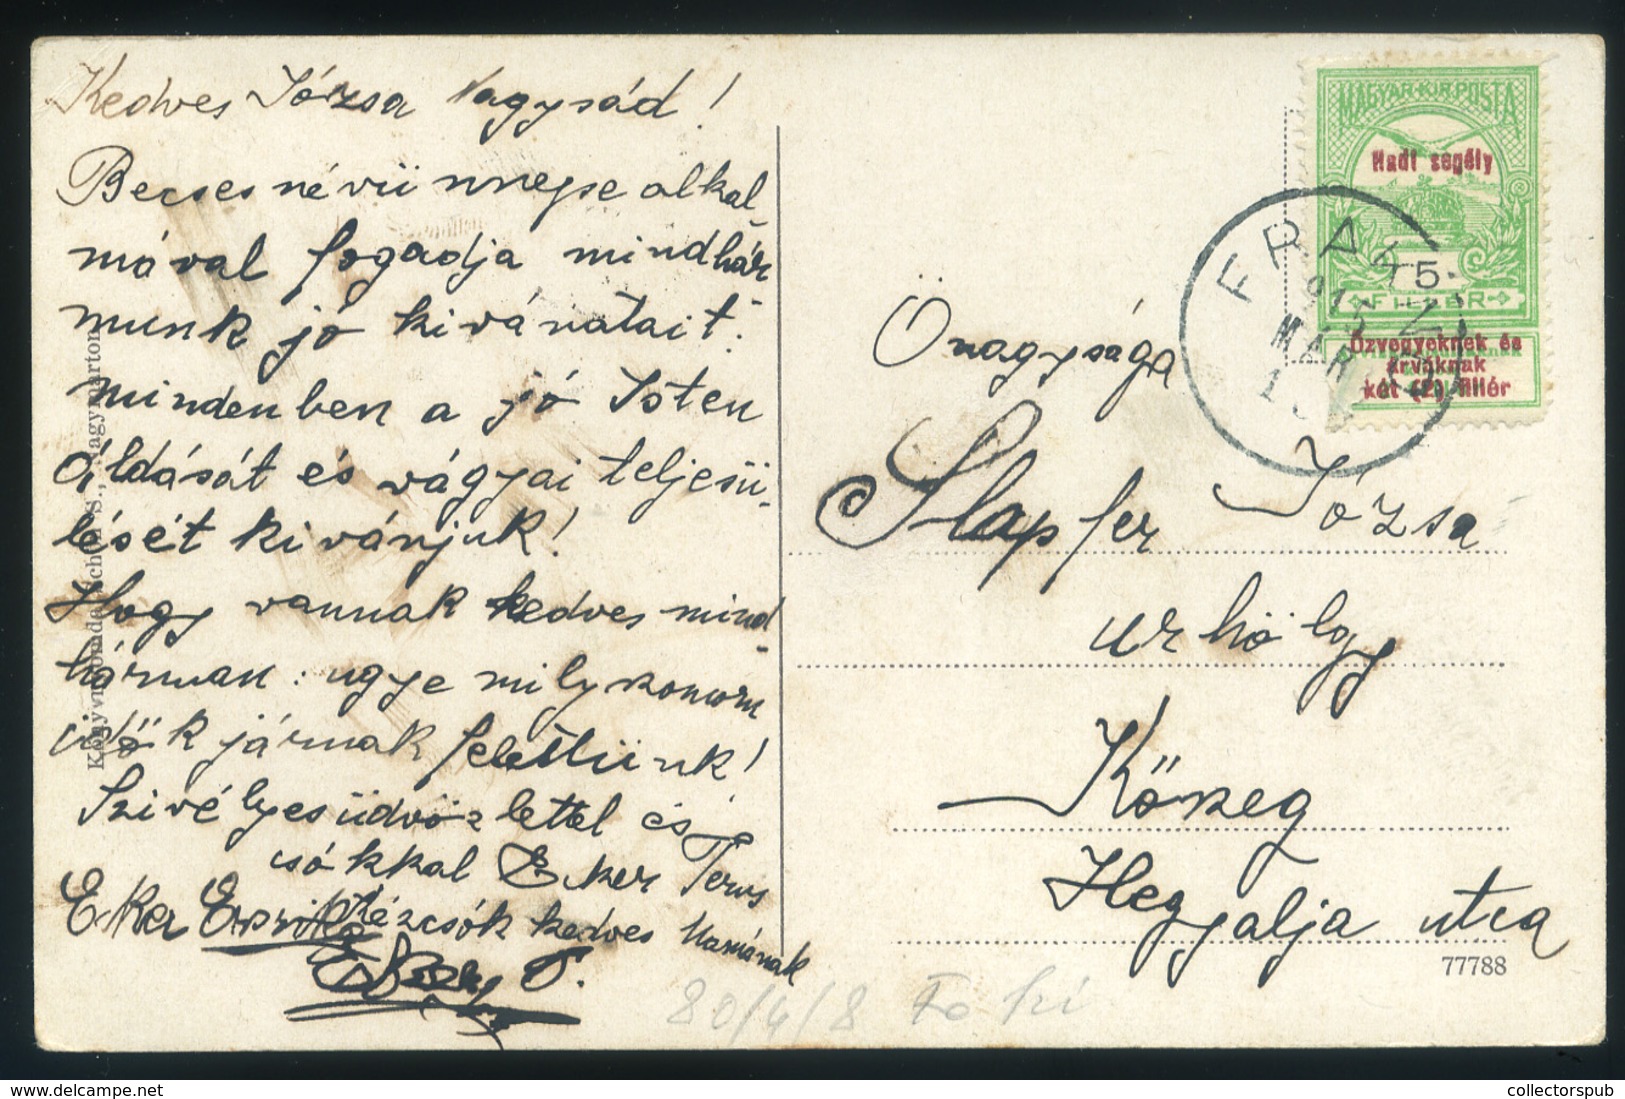 Kedves Józsa Nagysád!
Becses névü nnepe alkal-
mával fogadja mindhár-
munk jó kivánatait:
mindenben a jó Isten
áldását és vágyai teljesü-
lését kivánjuk!
Hogy vannak kedves mind-
hárman: ugye mily komom
idők járnak felettünk!
Szivélyes üdvözlettel és
csókkal Eker Terus
Eker
Kézcsók kedves Mamának
MAGYAR KIR. POSTA
Hadi segély
FILLÉR
Özvegyeknek és
árváknak
két (2) fillér
FRAK
915
MAR
Önagysága
Slapfer Józsa
urhölgy
Kőszeg
Hegyalja utca
77788
80/4/8
collectorspub